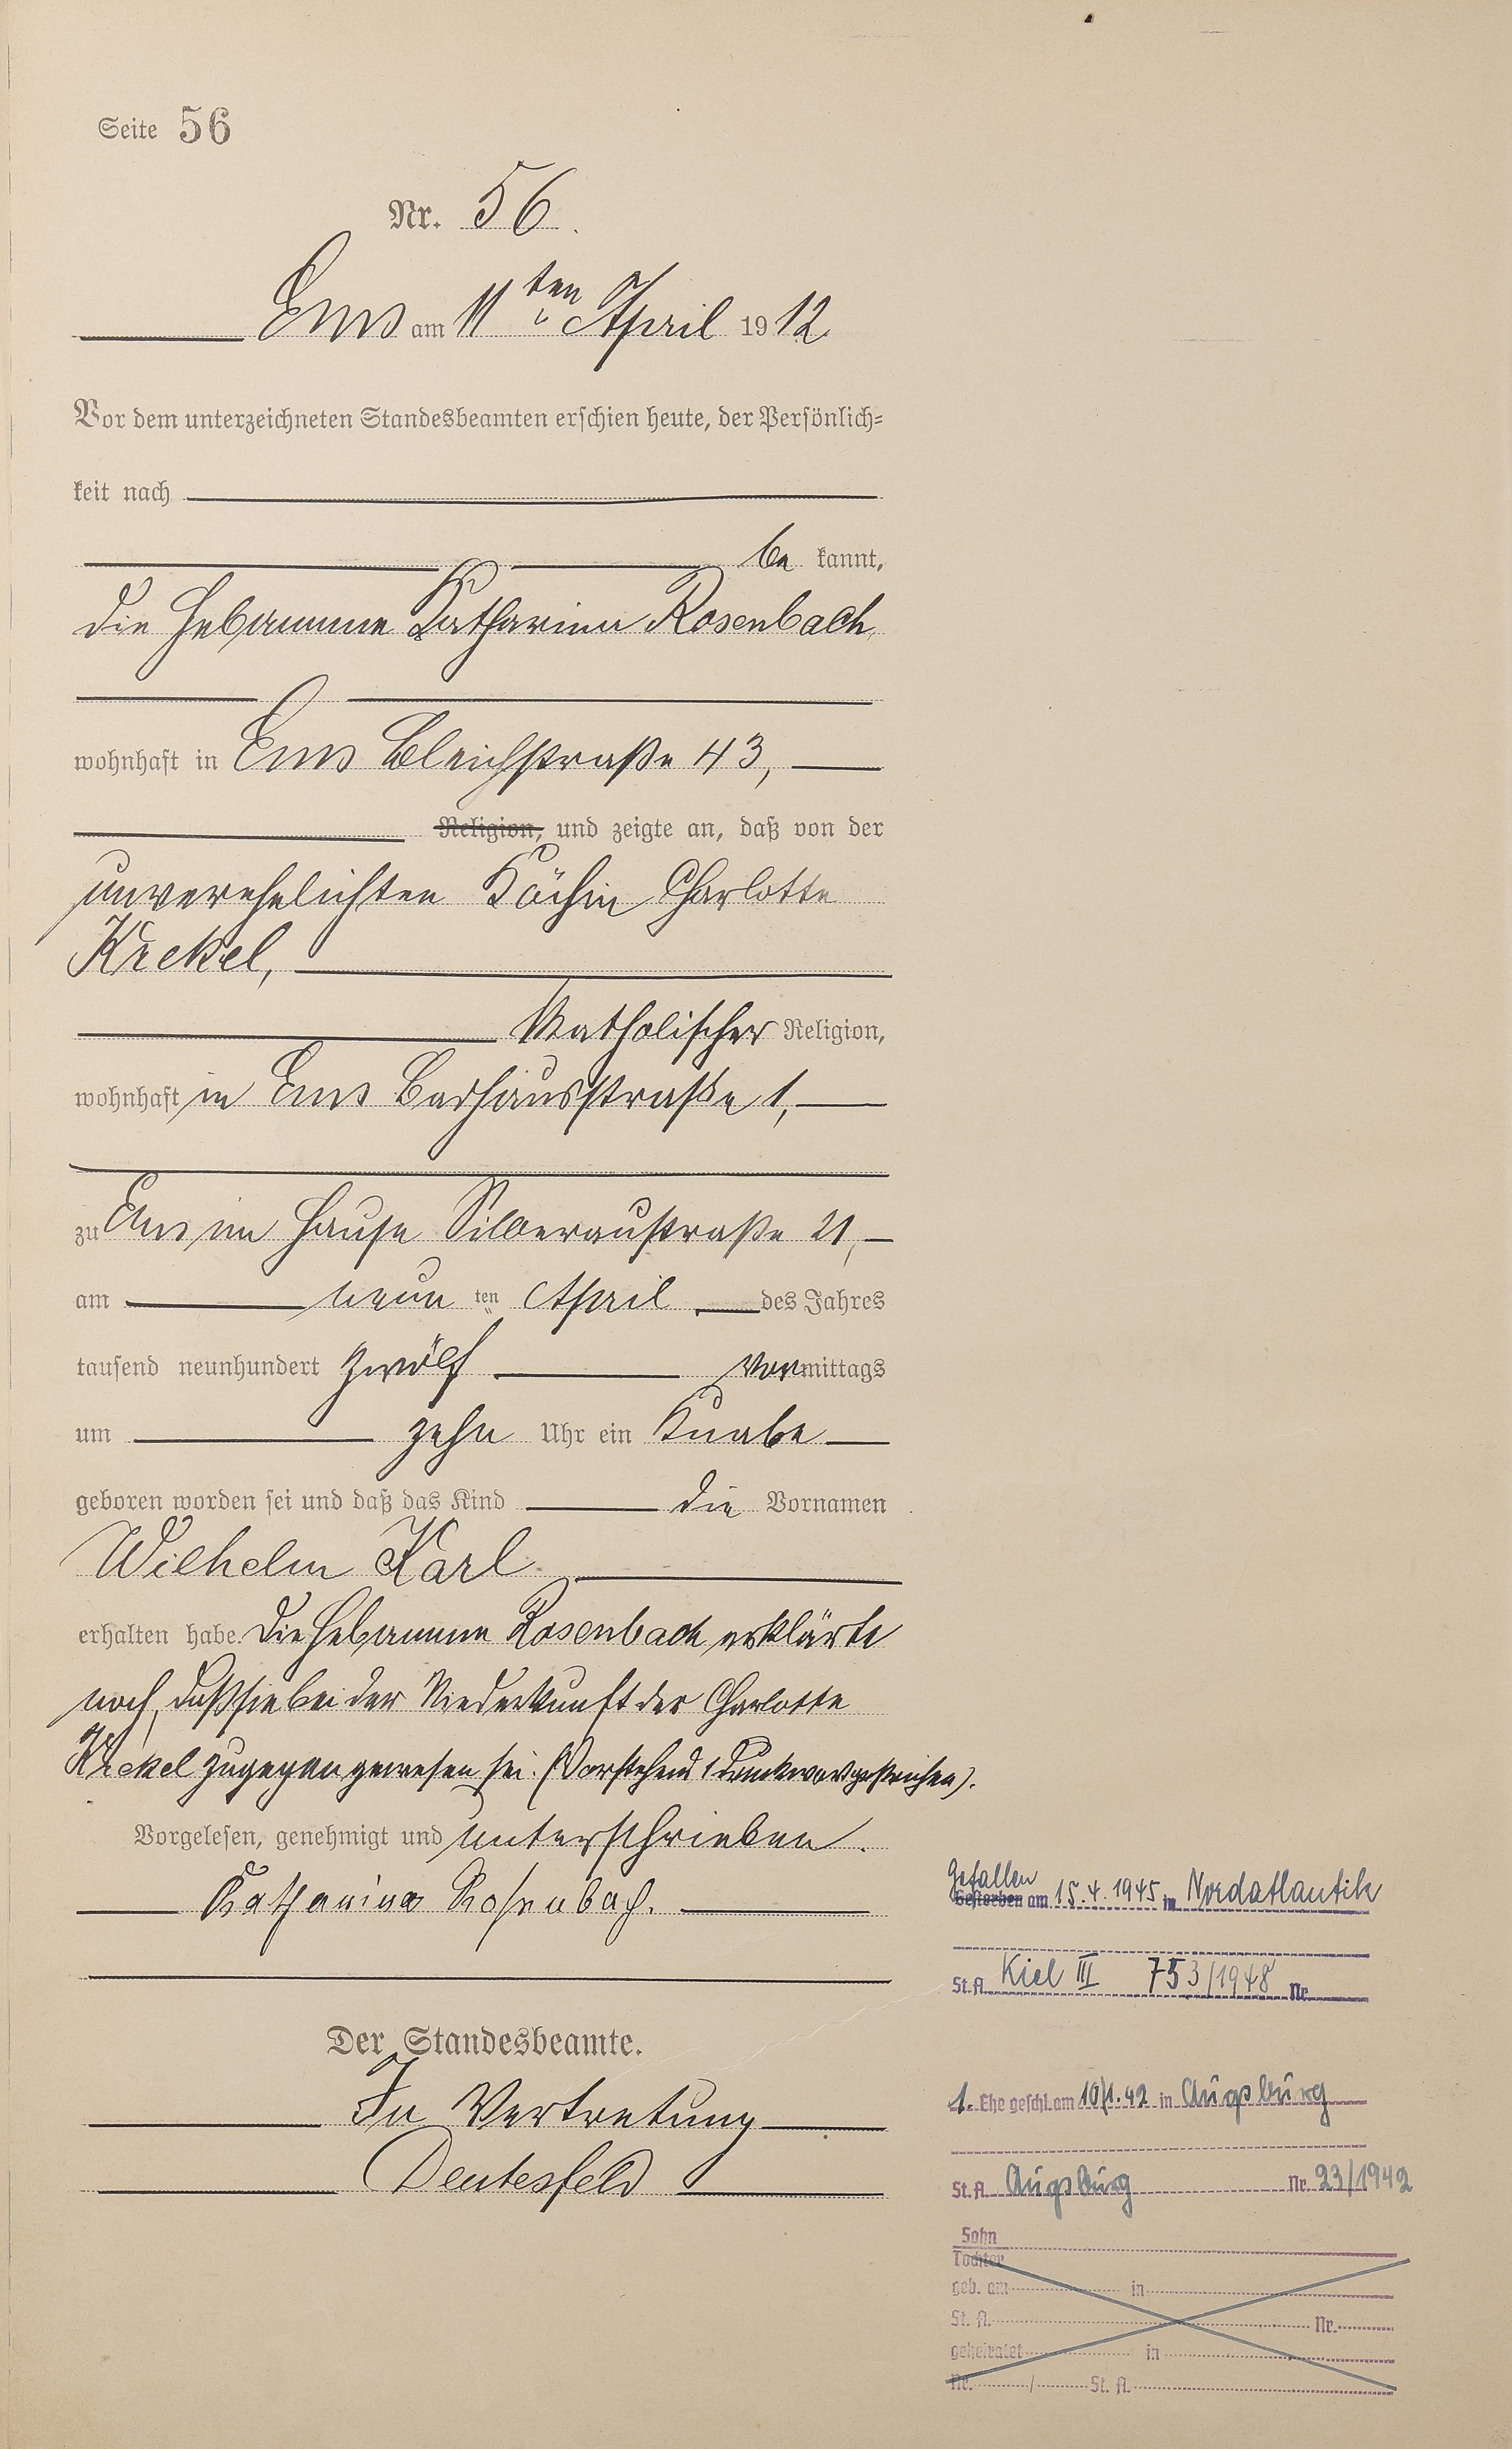 Seite 56
Nr. 56.
Ems am 11ten April 1912
Vor dem unterzeichneten Standesbeamten erschien heute, der Persönlich-
keit nach
be kannt,
die Hebamme Katharina Rosenbach
wohnhaft in Ems Bleichstraße 43,
Religion, und zeigte an, daß von der
unverehelichten Köchin Charlotte
Krekel,
katholischer Religion,
wohnhaft in Ems Badhausstraße 1,
zu Ems im Hause Silberaustraße 21,
am neun ten April des Jahres
tausend neunhundert zwölf vormittags
um zehn Uhr ein Knabe
geboren worden sei und daß das Kind die Vornamen
Wilhelm Karl
erhalten habe. Die Hebamme Rosenbach erklärte
noch, daß sie bei der Niederkunft der Charlotte
Krekel zugegen gewesen sei. (Vorstehend 1 Druckwort gestrichen).
Vorgelesen, genehmigt und unterschrieben.
Katharina Rosenbach.
Der Standesbeamte.
In Vertretung
Deutesfeld
Gefallen
Gestorben am 15.4.1945 in Nordatlantik
St.A. Kiel III 753/1948 Nr.
1. Ehe geschl. am 10/1.42 in Augsburg
St.A. Augsburg Nr. 23/1942
Sohn
Tochter
geb. am in
St. A. Nr.
geheiratet in
Nr. / St. A.